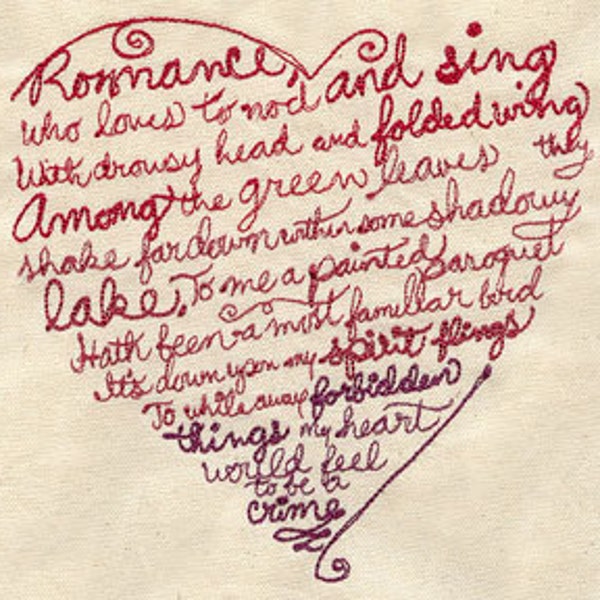 Romance, and sing
who loves to nod
With drowsy head and folded wing
Among the green leaves they
shake far down within some shadowy
lake. To me a painted paroquet
Hath been a most familiar bird
It's down upon my spirit flings
To while away forbidden
things my heart
would feel
to be a
crime